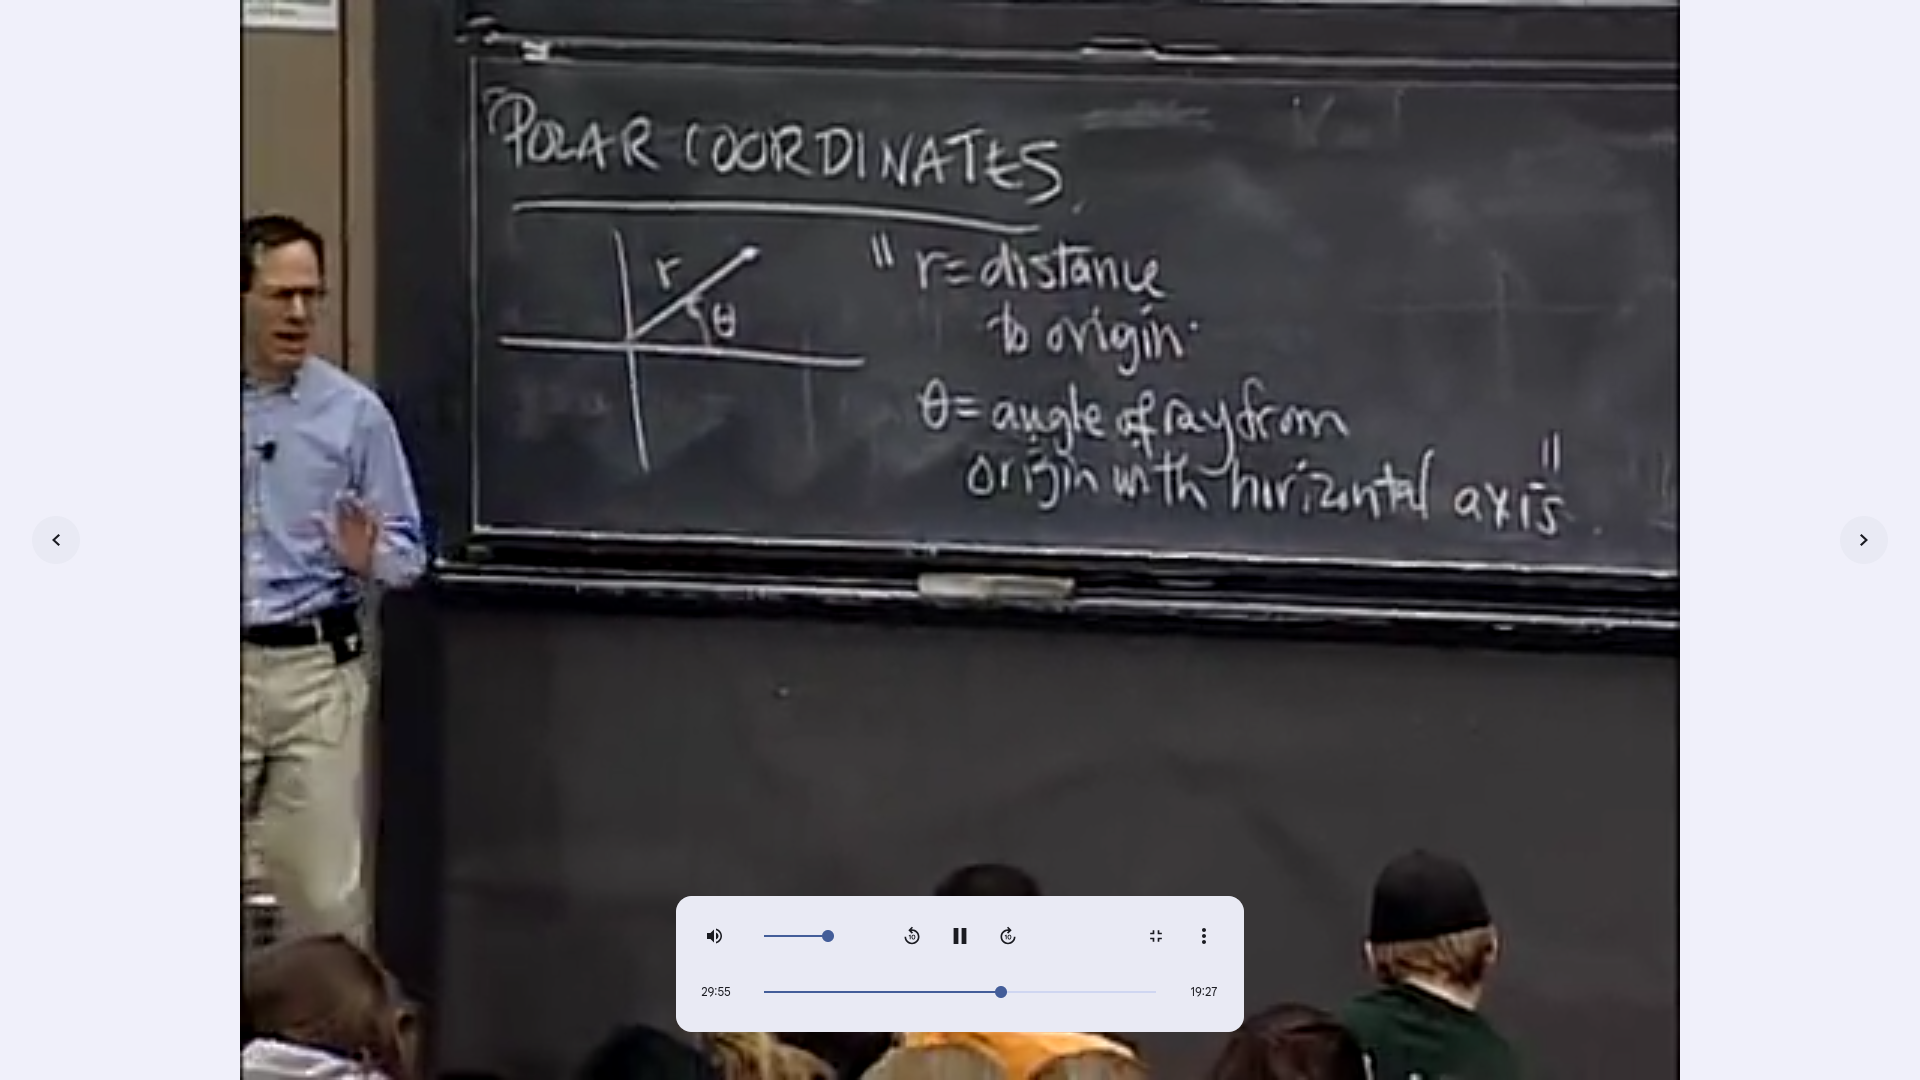 POLAR COORDINATES
r
θ
" r = distance
to origin.
θ = angle of ray from
origin with horizontal axis "
10
10
29:55
19:27